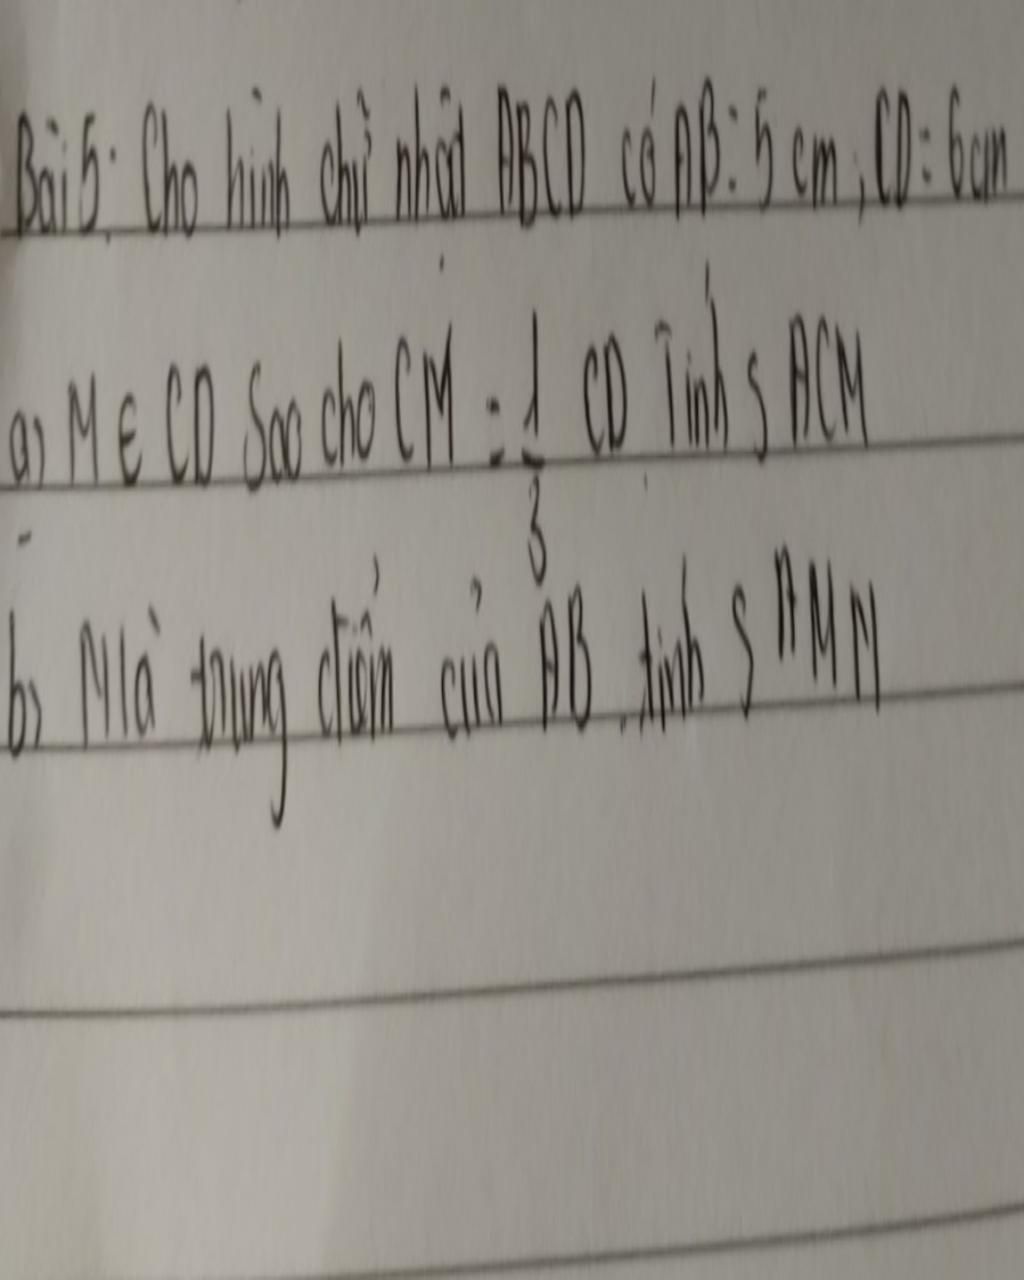 Bài 5: Cho hình chữ nhật ABCD có AB = 5 cm, CD = 6cm
a) M ∈ CD Sao cho CM = 1/3 CD Tính S ACM
b) N là trung điểm của AB. tính S AMN